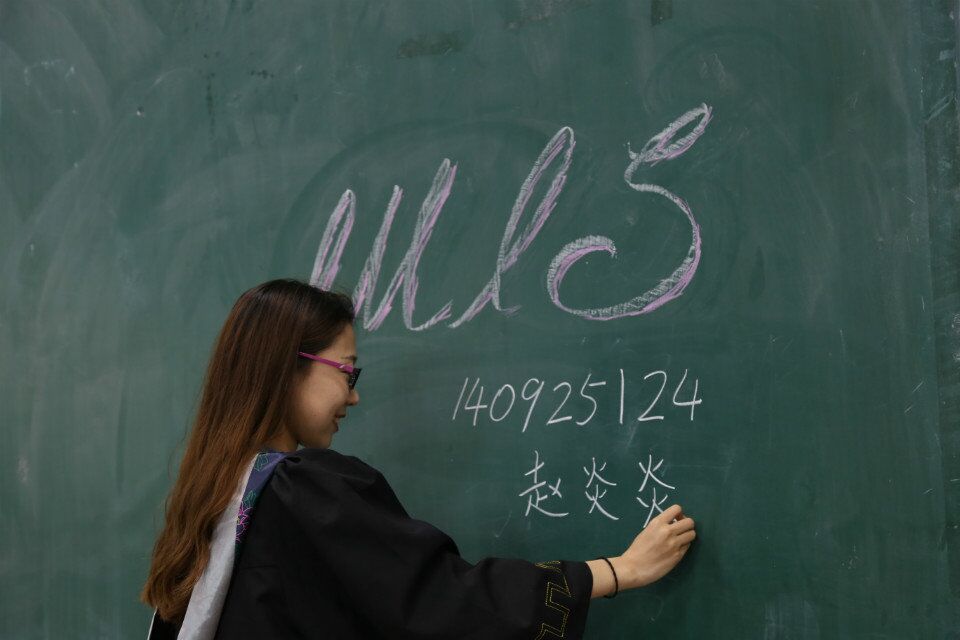 MIS
140925124
赵炎炎